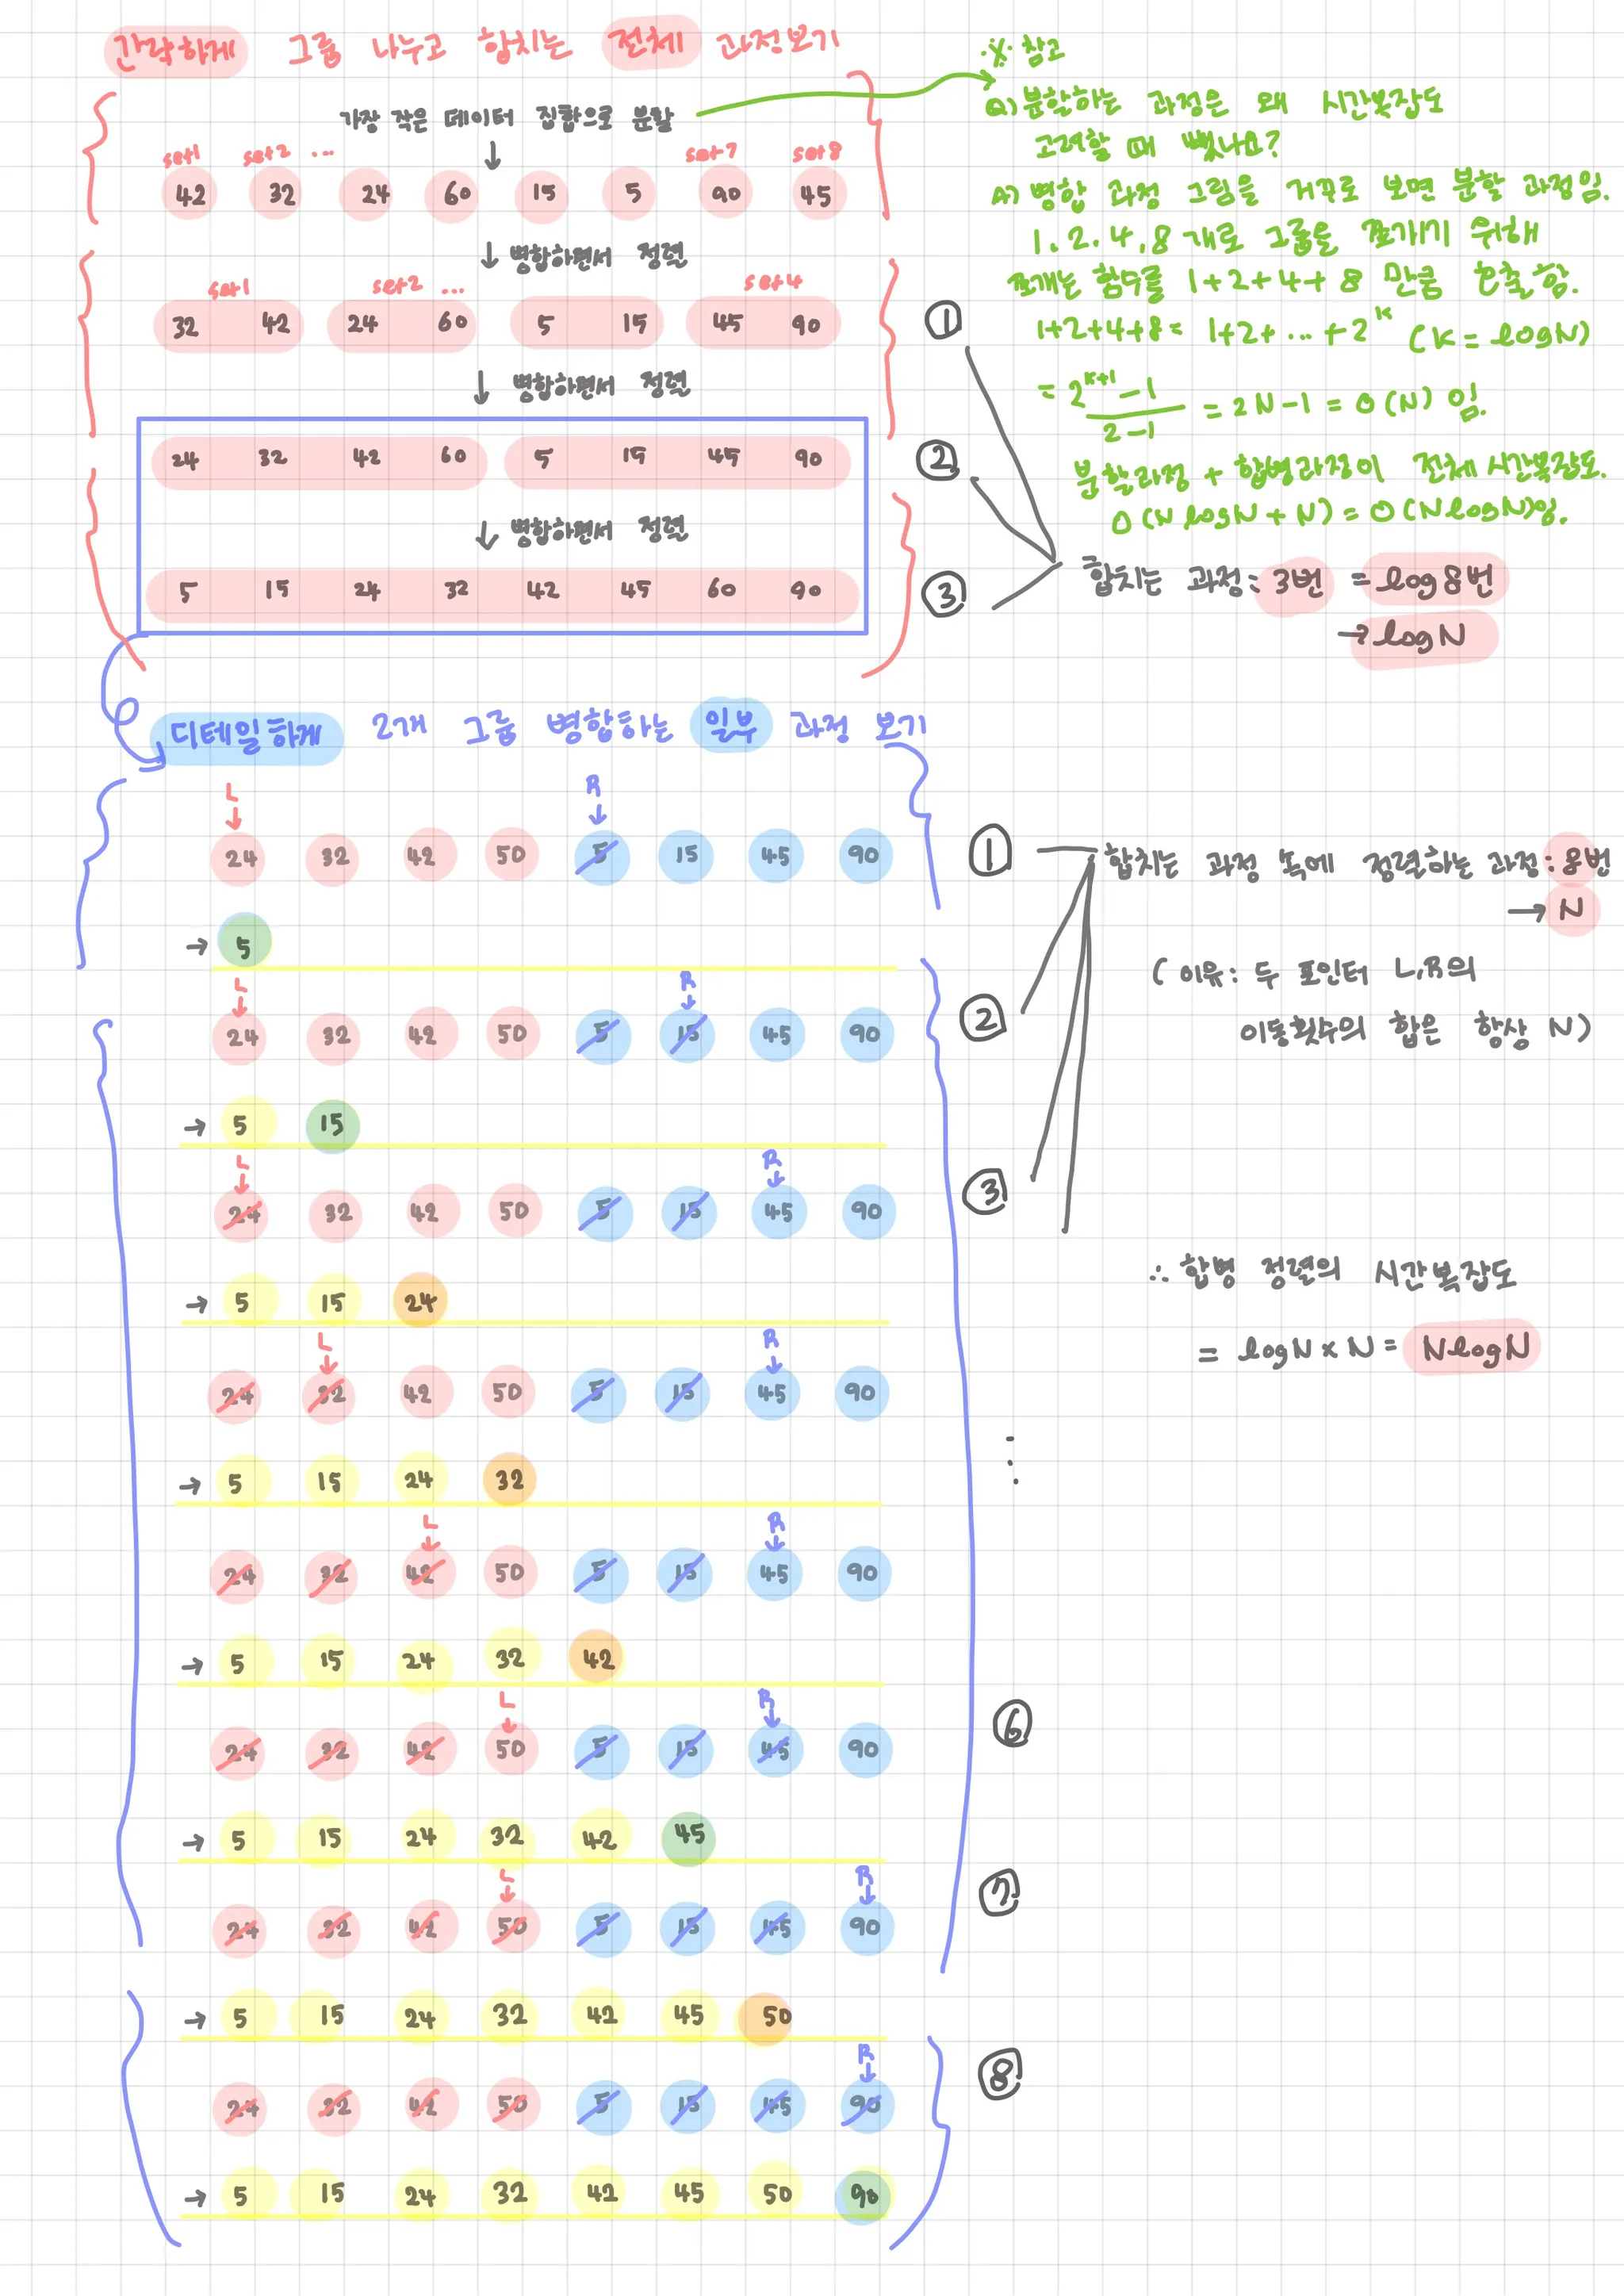 간략하게 그룹 나누고 합치는 전체 과정보기
가장 작은 데이터 집합으로 분할
↓
set1 set2 ... set7 set8
42 32 24 60 15 5 90 45
↓ 병합하면서 정렬
set1 set2 ... set4
32 42 24 60 5 15 45 90
↓ 병합하면서 정렬
24 32 42 60 5 15 45 90
↓ 병합하면서 정렬
5 15 24 32 42 45 60 90
※ 참고
Q) 분할하는 과정은 왜 시간복잡도
고려할 때 뺐나요?
A) 병합 과정 그림을 거꾸로 보면 분할 과정임.
1, 2, 4, 8 개로 그룹을 쪼개기 위해
쪼개는 함수를 1+2+4+8 만큼 호출 함.
1+2+4+8 = 1+2+...+2^K (K = logN)
= 2^(K+1) - 1 / 2-1 = 2N-1 = O(N) 임.
분할과정 + 합병과정이 전체 시간복잡도.
O(N logN + N) = O(NlogN)임.
①
②
③
합치는 과정: 3번 = log8번
→ logN
디테일하게 2개 그룹 병합하는 일부 과정 보기
L R
↓ ↓
24 32 42 50 5 15 45 90
→ 5
①
합치는 과정 속에 정렬하는 과정: 8번
→ N
(이유: 두 포인터 L,R의
이동횟수의 합은 항상 N)
L R
↓ ↓
24 32 42 50 5 15 45 90
②
→ 5 15
L R
↓ ↓
24 32 42 50 5 15 45 90
③
→ 5 15 24
∴ 합병 정렬의 시간복잡도
= logN × N = NlogN
L R
↓ ↓
24 32 42 50 5 15 45 90
→ 5 15 24 32
⋮
L R
↓ ↓
24 32 42 50 5 15 45 90
→ 5 15 24 32 42
L R
↓ ↓
24 32 42 50 5 15 45 90
⑥
→ 5 15 24 32 42 45
L R
↓ ↓
24 32 42 50 5 15 45 90
⑦
→ 5 15 24 32 42 45 50
R
↓
24 32 42 50 5 15 45 90
⑧
→ 5 15 24 32 42 45 50 90